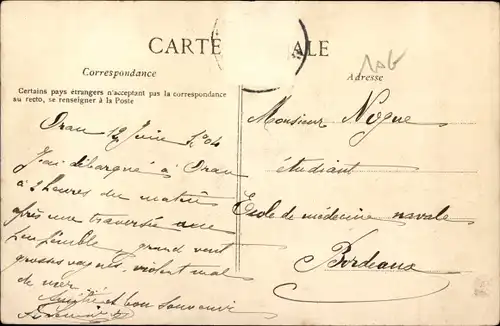 CARTE ALE
Correspondance
Certains pays étrangers n'acceptant pas la correspondance
au recto, se renseigner à la Poste
Oran 12 Juin 1904
J'ai débarqué à Oran
à 2 heures du matin
après une traversée un
peu pénible, grand vent
grosses vagues, violent mal
de mer.
Amitié et bon souvenir
Adresse
Monsieur Nogue
étudiant
Ecole de médecine navale
Bordeaux